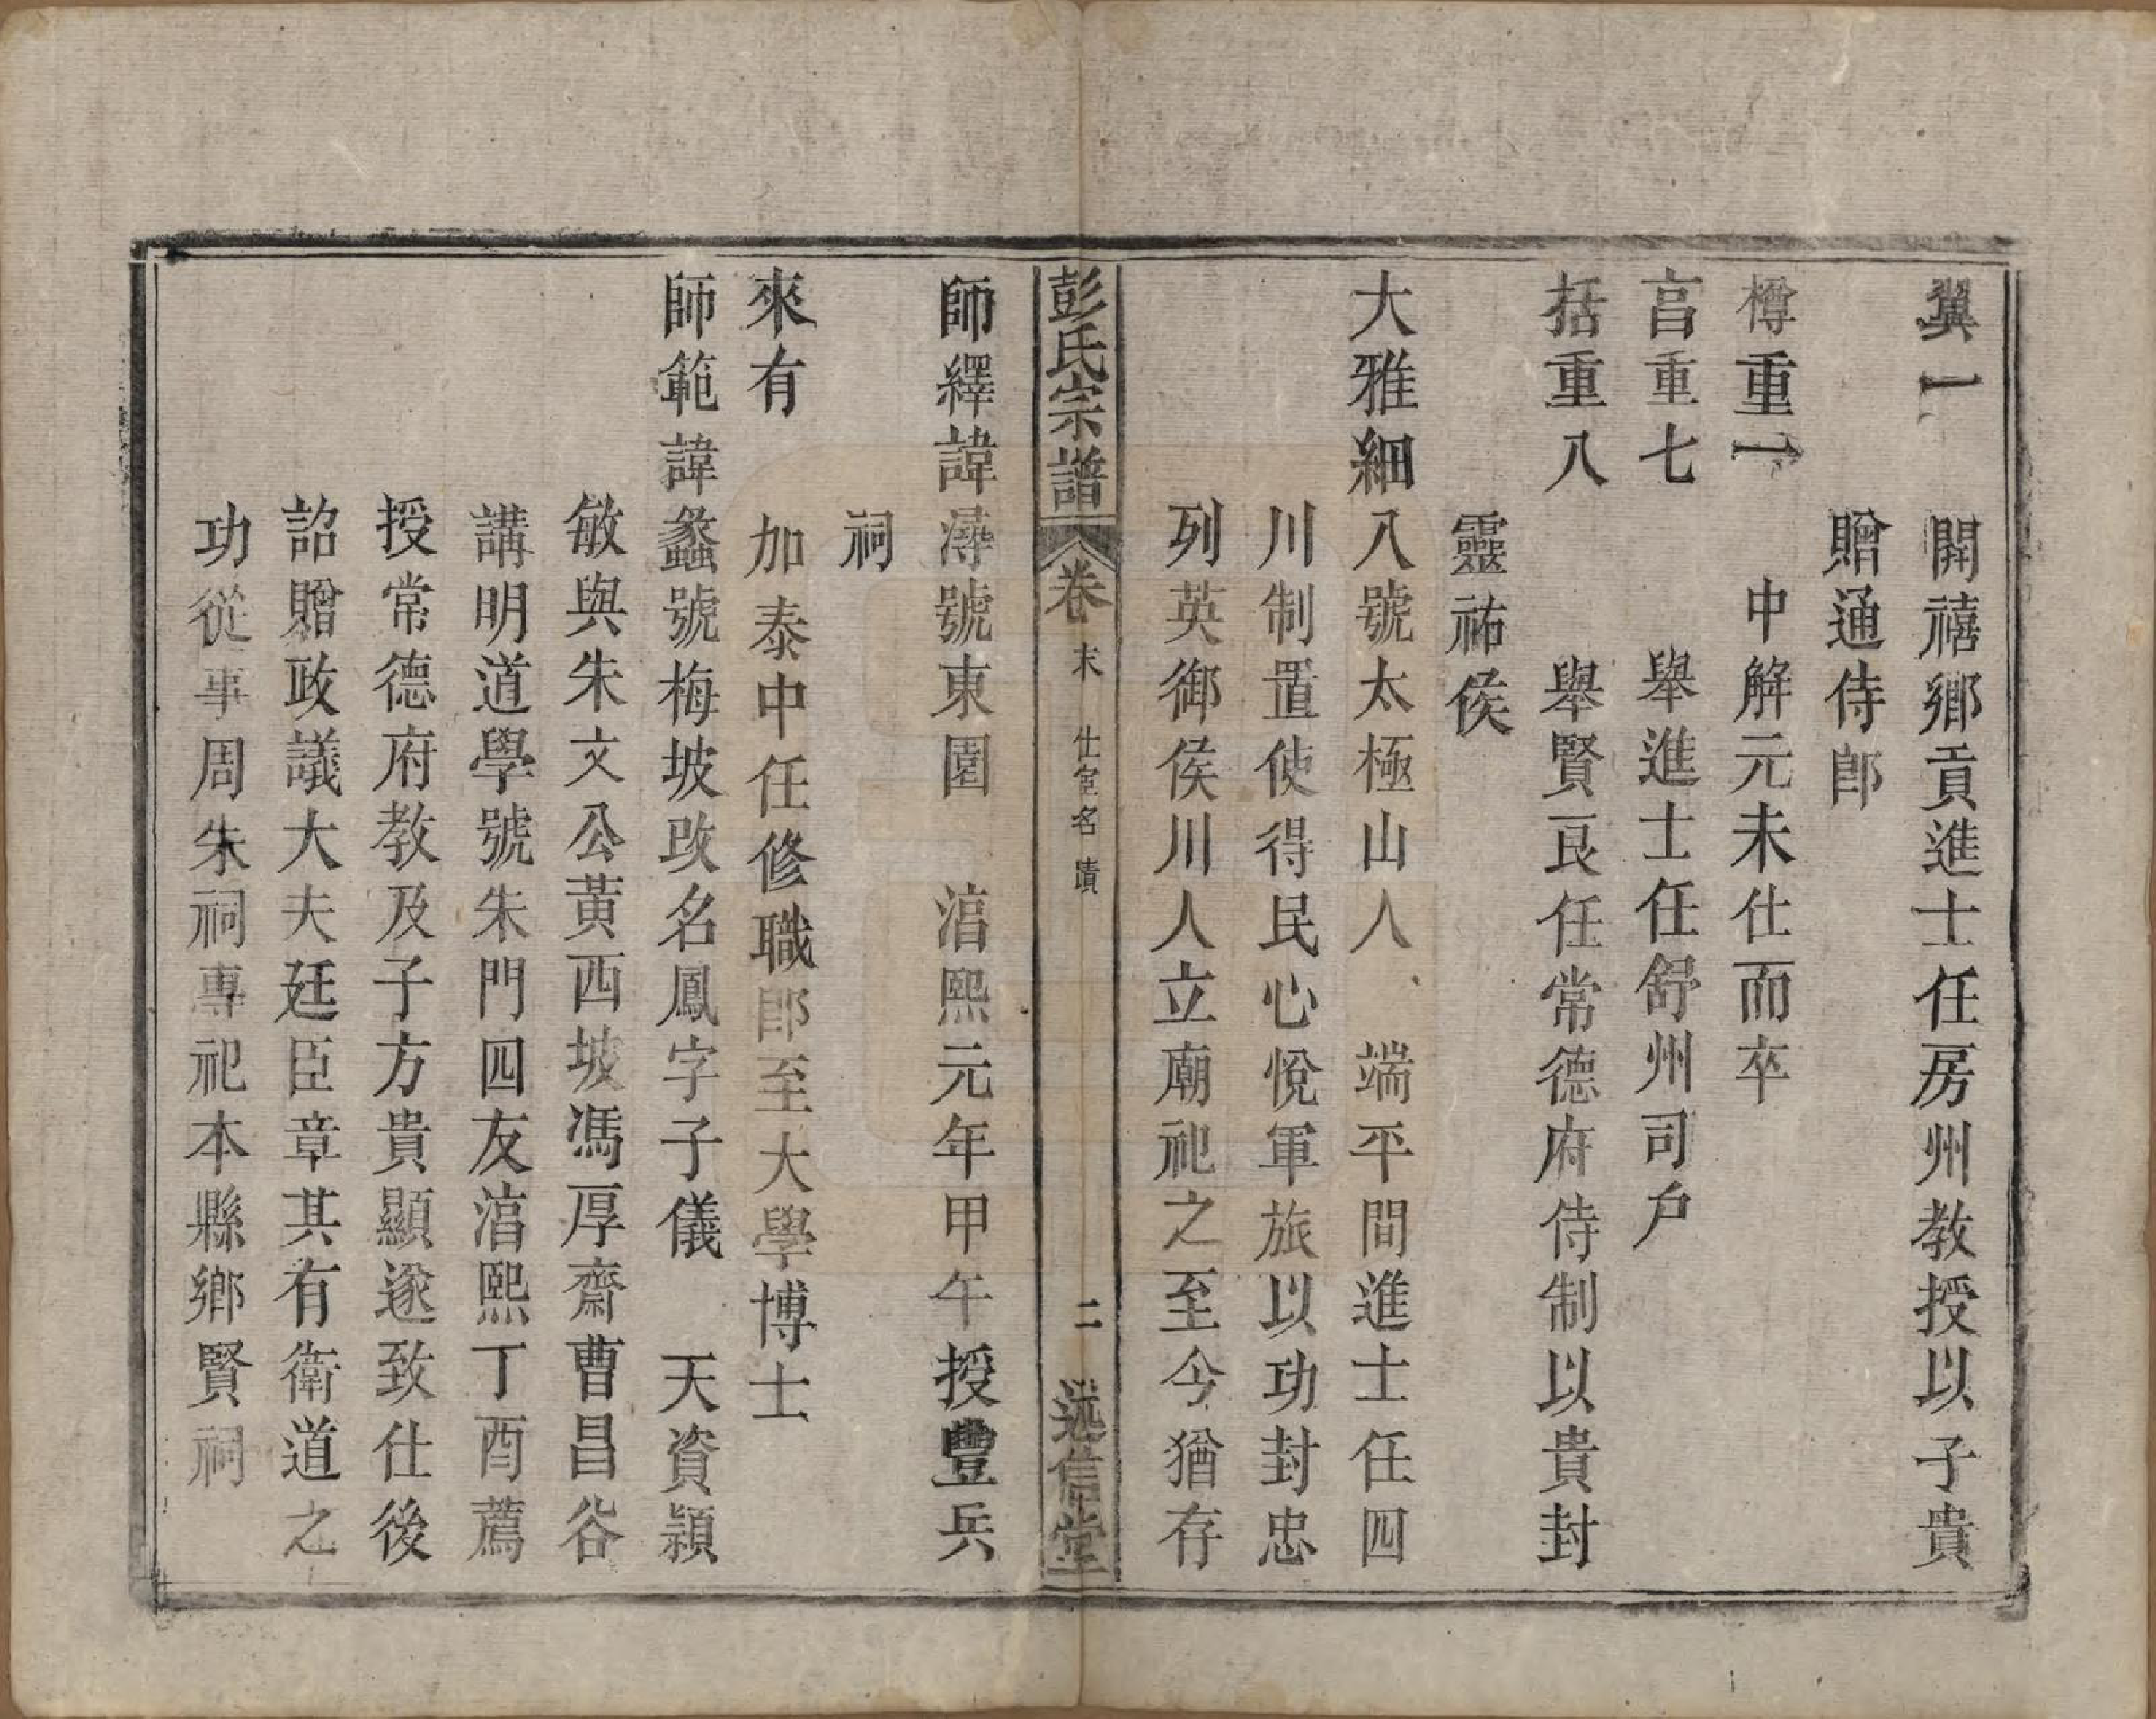 翼一　開禧鄉貢進士任房州教授以子貴
贈通侍郎
樽重一　中解元未仕而卒
亯重七　舉進士任舒州司戶
括重八　舉賢良任常德府侍制以貴封
靈祐侯
大雅細八號太極山人　端平間進士任四
川制置使得民心悅軍旅以功封忠
列英御侯川人立廟祀之至今猶存
彭氏宗譜　卷末　仕宦名蹟　二　述信堂
師繹諱潯號東園　淯熙元年甲午授豐兵
祠
來有　加泰中任修職郎至大學博士
師範諱蠡號梅坡改名鳳字子儀　天資穎
敏與朱文公黄西坡馮厚齋曹昌谷
講明道學號朱門四友淯熙丁酉薦
授常德府教及子方貴顯遂致仕後
詔贈政議大夫廷臣章其有衛道之
功從事周朱祠專祀本縣鄉賢祠